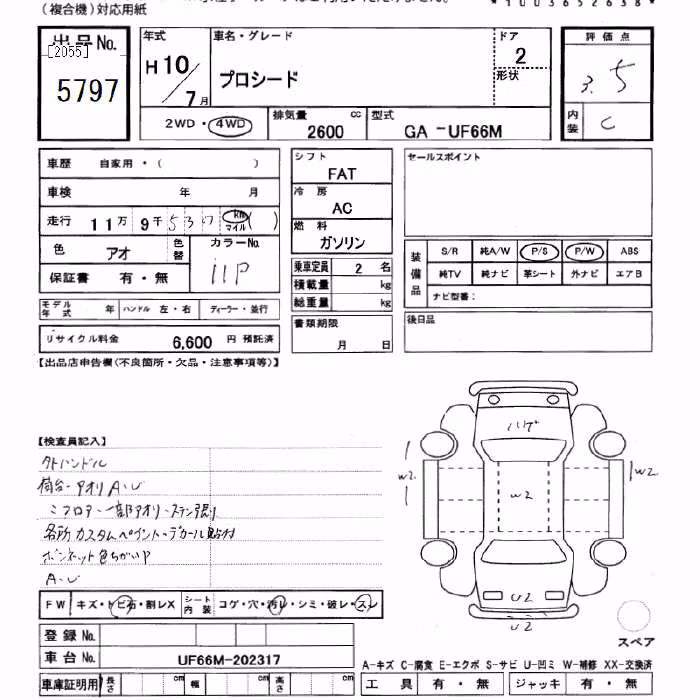 (複合機)対応用紙
*1003652638*
出品No.
[2055]
5797
年式
H10/7月
車名・グレード
プロシード
ドア
2
形状
評価点
3.5
内装
C
2WD・4WD
排気量
2600
cc
型式
GA-UF66M
車歴 自家用・( )
車検 年 月
走行 11万9千530 km マイル ( )
色 アオ 色替
カラーNo.
11P
保証書 有・無
シフト
FAT
冷房
AC
燃料
ガソリン
乗車定員 2 名
積載量 kg
総重量 kg
書類期限
月 日
セールスポイント
装備品
S/R 純A/W P/S P/W ABS
純TV 純ナビ 革シート 外ナビ エアB
ナビ型番:
後日品
モデル年式 年 ハンドル 左・右 ディーラー・並行
リサイクル料金 6,600 円 預託済
【出品店申告欄(不良箇所・欠品・注意事項等)】
【検査員記入】
タトハンドル
荷台-アオリ A-U
ミラロアー一部アオリ-ステン張り
各所カスタムペイント-デカール貼付
ボンネット色ちがい
A-U
FW キズ・トビ石・割レX シート内装 コゲ・穴・汚レ・シミ・破レ・スレ
登録No.
車台No. UF66M-202317
車庫証明用 長さ cm 幅 cm 高さ cm
W2
W2
W2
U2
U2
スペア
A-キズ C-腐食 E-エクボ S-サビ U-凹ミ W-補修 XX-交換済
工具 有・無 ジャッキ 有・無